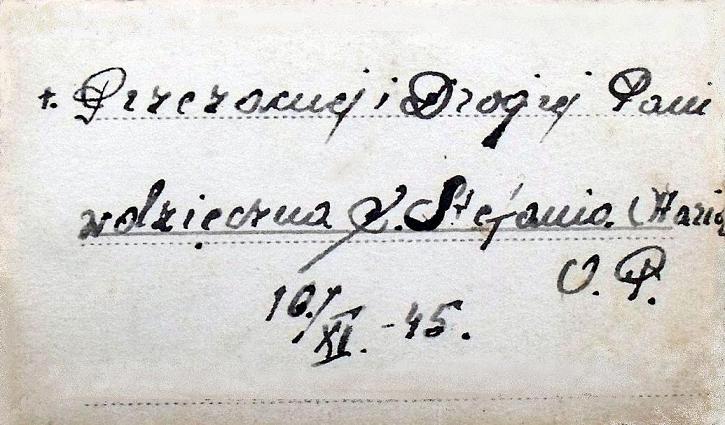 +. Przezacnej i Drogiej Pani
wdzięczna S. Stefania (Maria
O. P.
10/XI. -45.